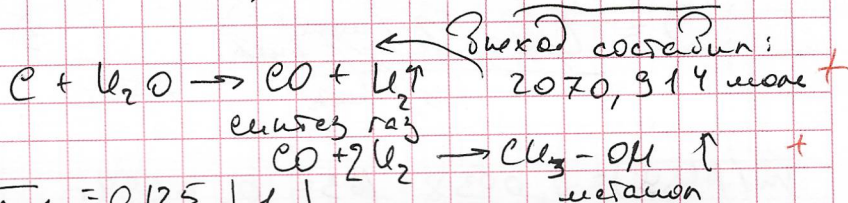 Выход составил:
C + H₂O → CO + H₂↑ 2070,914 моль +
синтез газ
CO + 2H₂ → CH₃-OH ↑ +
= 0,125
метанол